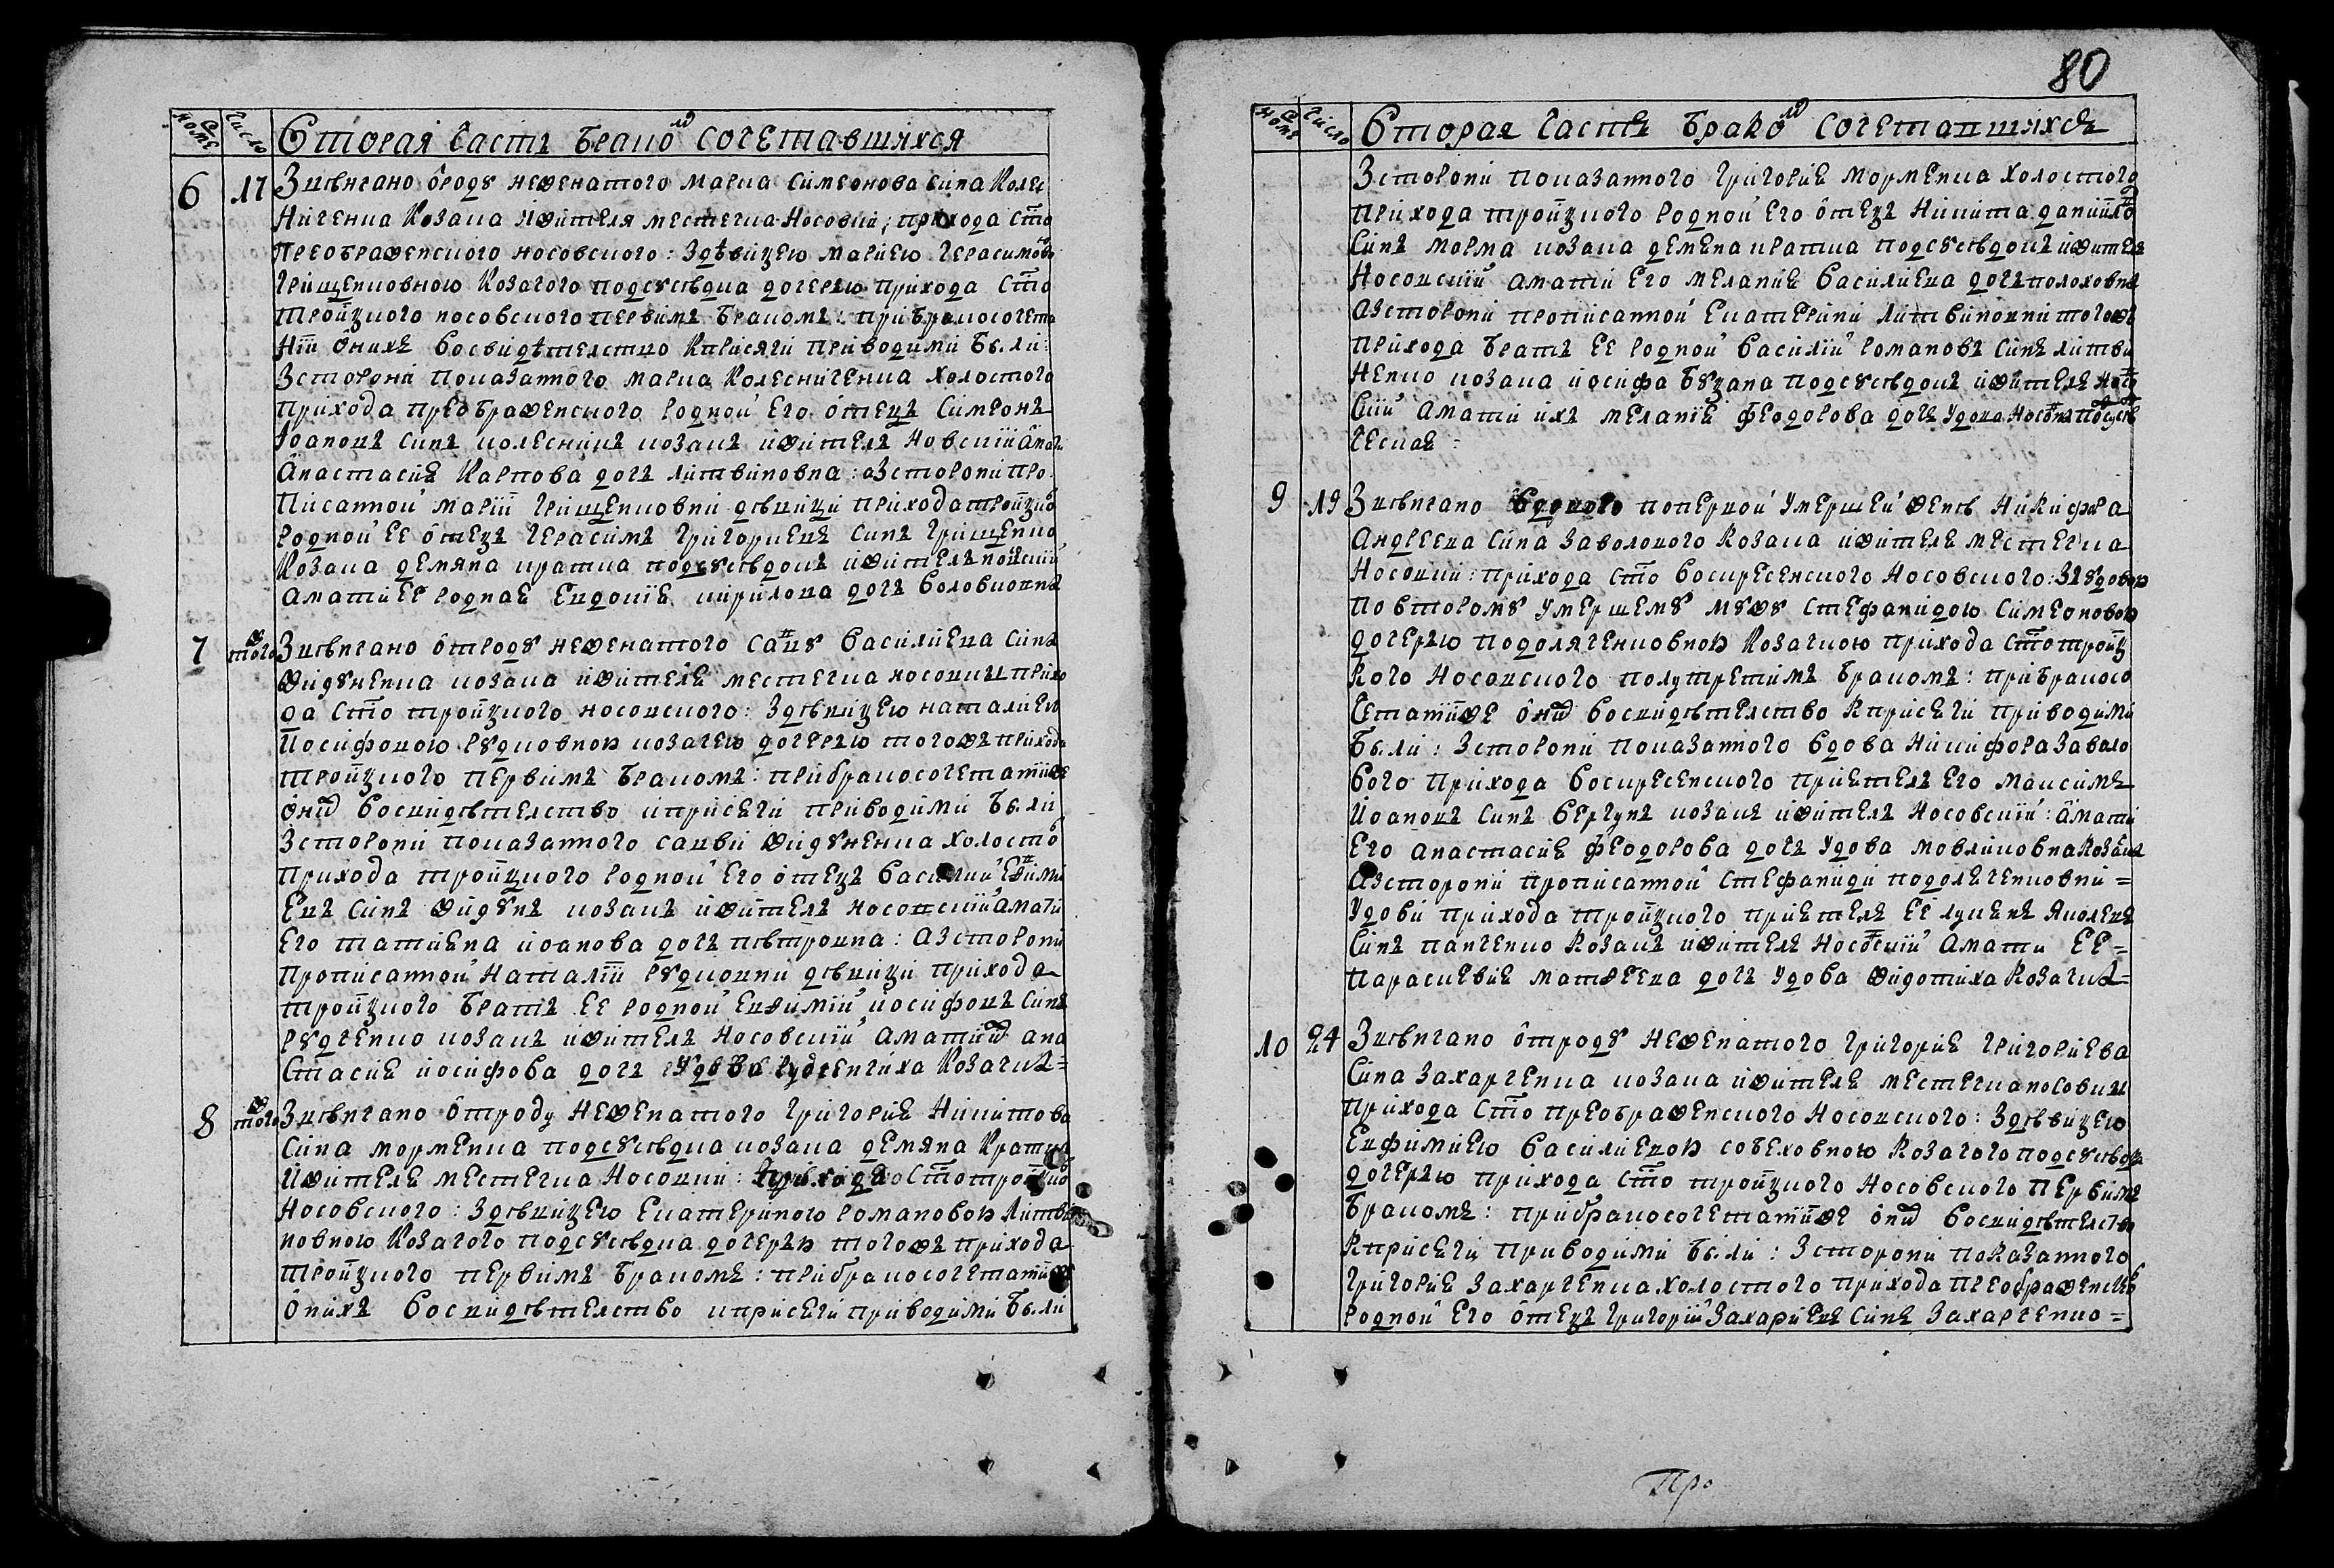 80
Номе Число Вторая часть бракомъ сочетавшихся
6 17 Звѣнчано отроду неженатого Марка Симеонова сина Колес
ниченка козака и жителя местечка Носовки, прихода сто
Преображенского носовского: з дѣвицею Мариею Герасимово
Грищенковною козачого подсусѣдка дочерью прихода сто
Троицкого носовского первимъ бракомъ: при бракосочета
нии онихъ во свидѣтелство к присяги приводими были:
З сторони показанного Марка Колесниченка холостого
прихода преображенского родной его отецъ Симеонъ
Иоановъ синъ Колесникъ козакъ и жителъ носовский а мати
Анастасия Карпова дочъ Литвиновна: а з сторони про
писанной Марии Грищенковни дѣвици прихода троицко
родной ее отецъ Герасимъ Григориевъ синъ Грищенко
козака Демяна Кратка подсусѣдокъ и жителъ носовский
а мати ее родная Евдокия Кирилова дочъ Воловиковна
7 того ж Звѣнчано отроду неженатого Савку Василиева сина
Жидуненка козака и жителя местечка Носовки прихо
да сто троицкого носовского: з дѣвицею Наталиею
Иосифовою Рудковною козачею дочерью того жъ прихода
троицкого первимъ бракомъ: при бракосочетании же
оних во свидѣтелство к присяги приводими были
З сторони показанного Савки Жидуненка холосто
прихода троицкого родной его отецъ Василий Ефими
евъ синъ Жидунъ козакъ и жителъ носовский а мати
его Татияна Иоанова дочъ Пѣтровна: а з сторони
прописанной Наталии Рудковни дѣвици прихода
троицкого братъ ее родной Евфимий Иосифовъ синъ
Рудченко козакъ и жителъ носовский а мати их Ана
стасия Иосифова дочъ удова Рудченчиха козачка=
8 того ж Звѣнчано отроду неженатого Григория Никитова
сина Морменка подсусѣдка козака Демяна Кратка
и жителя местечка Носовки: прихода сто троицко
носовского: з дѣвицею Екатериною Романовою Литви
новною козачого подсусѣдка дочерью того жъ прихода
троицкого первимъ бракомъ: при бракосочетании же
онихъ во свидѣтелство к присяги приводими были
Номе Число Вторая часть бракомъ сочетавшихся
З сторони показанного Григория Морменка холостого
прихода троицкого родной его отецъ Никита Данийло
синъ Морма козака Демяна Кратка подсусѣдокъ и жителъ
носовский а мати его Мелания Василиева дочъ Полоховна
а з сторони прописанной Екатерини Литвиновни того жъ
прихода братъ ее родной Василий Романовъ синъ Литви
ненко козака Иосифа Буцана подсусѣдокъ и жителъ носо
вский а мати ихъ Мелания Феодорова дочъ удова носовка подсусѣ
дческая:
9 19 Звѣнчано вдового по первой умершей женѣ Никифора
Андреева сина Заволокого козака и жителя местечка
Носовки: прихода сто воскресенского носовского: з удовою
по второму умершему мужу Стефанидою Симеоновою
дочерью Подоляченковною козачкою прихода сто троиц
кого носовского полутретимъ бракомъ: при бракосо
четании же оних во свидѣтелство к присяги приводими
были: з сторони показанного вдова Никифора Заволо
кого прихода воскресенского приятель его Максимъ
Иоановъ синъ Вергунъ козакъ и жителъ носовский: а мати
его Анастасия Феодорова дочъ удова Мовликовна козачка
а з сторони прописанной Стефаниди Подоляченковни=
удови прихода троицкого приятель ее Лукянъ Яковлевъ
синъ Панченко козакъ и жителъ носовский а мати ее=
Параскевия Матфеева дочъ удова Жидотиха козачка=
10 24 Звѣнчано отроду неженатого Григория Григориева
сина Захарченка козака и жителя местечка Носовки
прихода сто преображенского носовского: з дѣвицею
Евфимиею Василиевою Собеховною козачого подсусѣдка
дочерью прихода сто троицкого носовского первимъ
бракомъ: при бракосочетании же оних во свидѣтелство
к присяги приводими были: з сторони показанного
Григория Захарченка холостого прихода преображенско
родной его отецъ Григорий Захариевъ синъ Захарченко=
Про